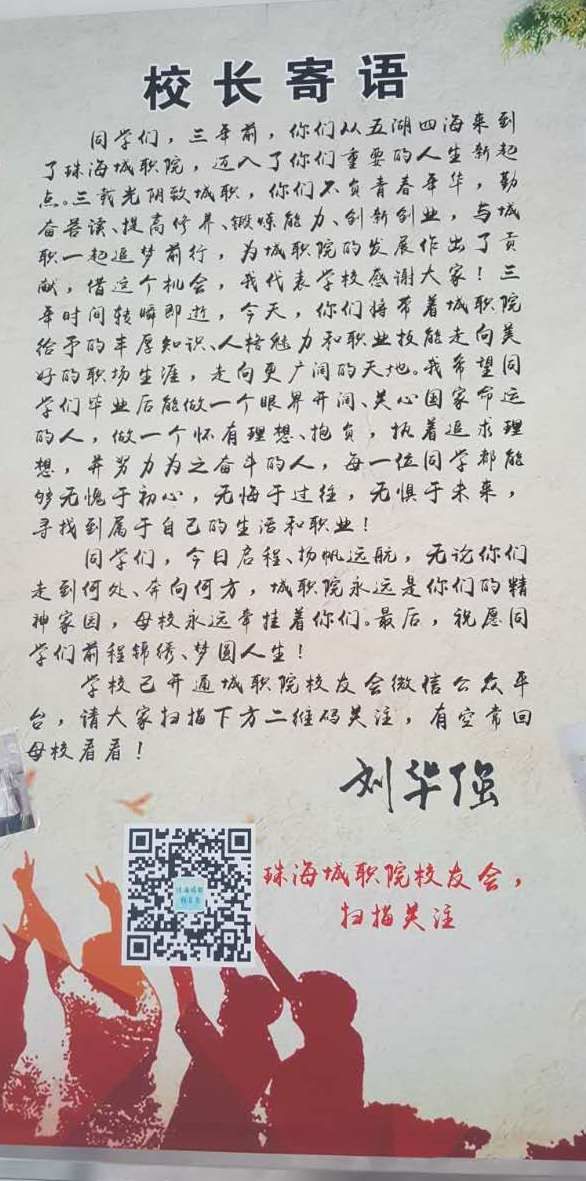 校长寄语
同学们，三年前，你们从五湖四海来到
了珠海城职院，迈入了你们重要的人生新起
点。三载光阴致城职，你们不负青春年华，勤
奋苦读、提高修养、锻炼能力、创新创业，与城
职一起追梦前行，为城职院的发展作出了贡
献，借这个机会，我代表学校感谢大家！三
年时间转瞬即逝，今天，你们将带着城职院
给予的丰厚知识、人格魅力和职业技能走向美
好的职场生涯，走向更广阔的天地。我希望同
学们毕业后能做一个眼界开阔、关心国家命运
的人，做一个怀有理想、抱负，执着追求理
想，并努力为之奋斗的人，每一位同学都能
够无愧于初心，无悔于过往，无惧于未来，
寻找到属于自己的生活和职业！
同学们，今日启程、扬帆远航，无论你们
走到何处、奔向何方，城职院永远是你们的精
神家园，母校永远牵挂着你们。最后，祝愿同
学们前程锦绣、梦圆人生！
学校已开通城职院校友会微信公众平
台，请大家扫描下方二维码关注，有空常回
母校看看！
刘华强
珠海城职院校友会，
扫描关注